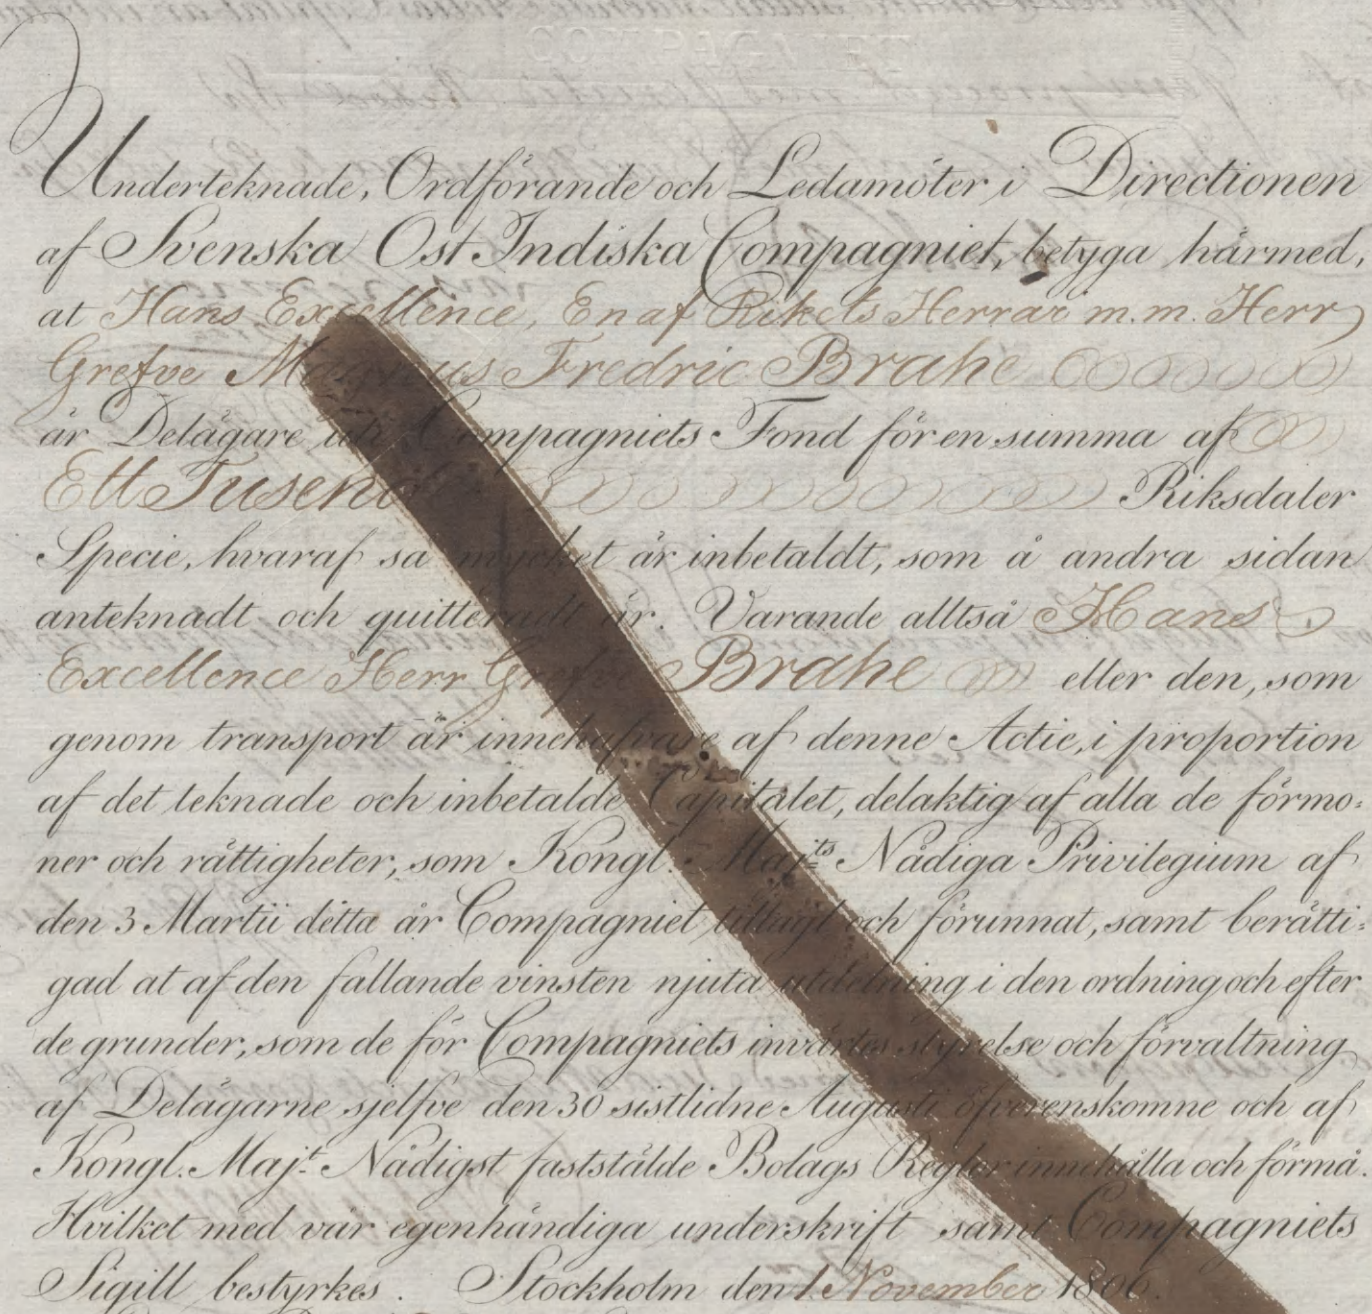 Underteknade, Ordförande och Ledamöter i Directionen
af Svenska Ost Indiska Compagniet, betyga härmed,
at Hans Excellence, En af Rikets Herrar m.m. Herr
Grefve Magnus Fredric Brahe
är Delägare uti Compagniets Fond för en summa af
Ett Tusend Riksdaler
Specie, hvaraf så mycket är inbetaldt, som å andra sidan
anteknadt och quitteradt är. Varande alltså Hans
Excellence Herr Grefve Brahe eller den, som
genom transport är innehafvare af denne Actie, i proportion
af det teknade och inbetalde Capitalet, delaktig af alla de förmo=
ner och rättigheter, som Kongl. Maj:ts Nådiga Privilegium af
den 3 Martii detta år Compagniet tillagt och förunnat, samt berätti=
gad at af den fallande vinsten njuta utdelning i den ordning och efter
de grunder, som de för Compagniets invärtes styrelse och förvaltning
af Delägarne sjelfve den 30 sistlidne Augusti öfverenskomne och af
Kongl. Maj:t Nådigst faststälde Bolags Reglor innehålla och förmå.
Hvilket med vår egenhändiga underskrift samt Compagniets
Sigill bestyrkes. Stockholm den 1 November 1806.